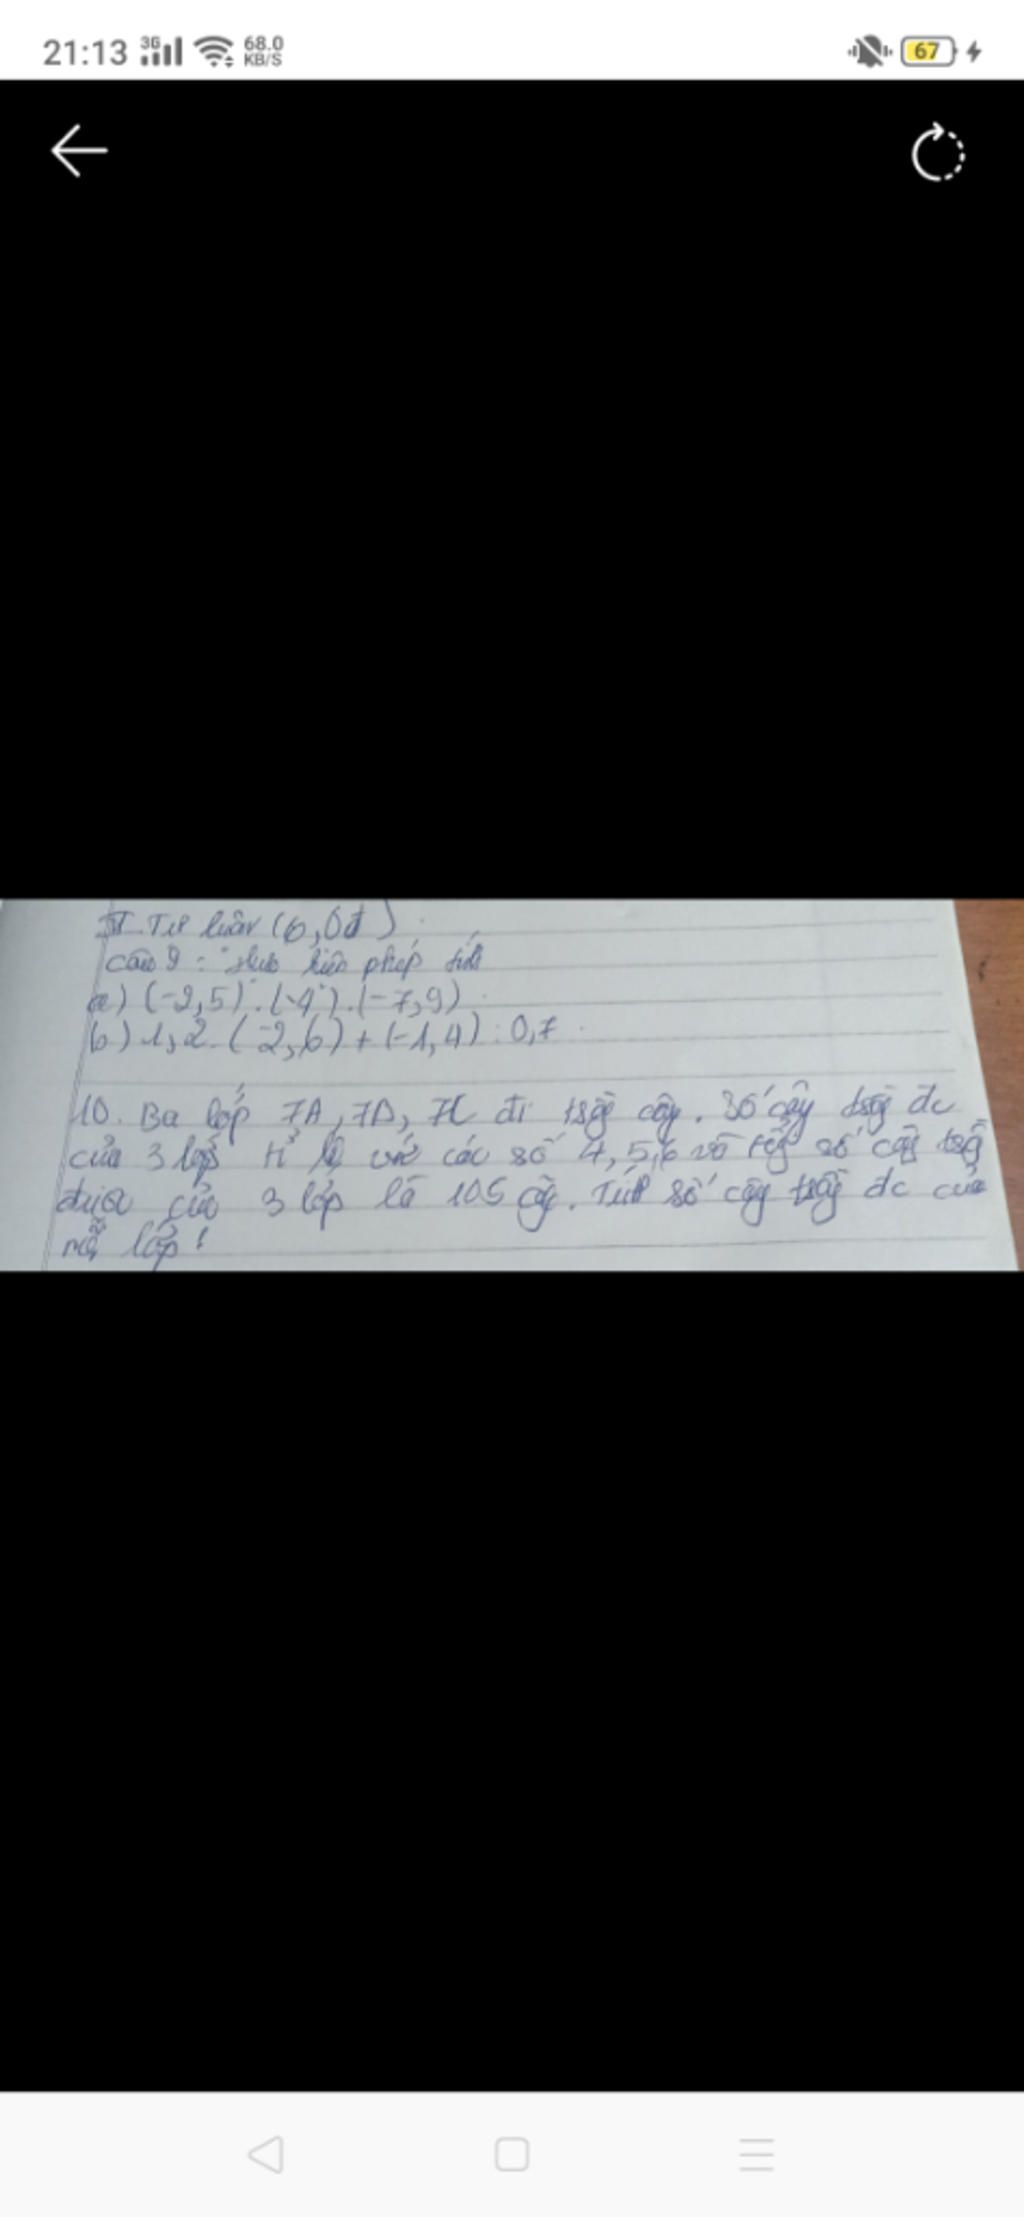 21:13 3G 68.0 KB/S 67
II. Tự luận (6,0đ)
câu 9: Thực hiện phép tính
a) (-2,5).(-4).(-7,9)
b) 1,2.(-2,6)+(-1,4):0,7
10. Ba lớp 7A, 7B, 7C đi trồng cây. Số cây trồng đc
của 3 lớp tỉ lệ với các số 4,5,6 và tổng số cây trồng
được của 3 lớp là 105 cây. Tính số cây trồng đc của
mỗi lớp!